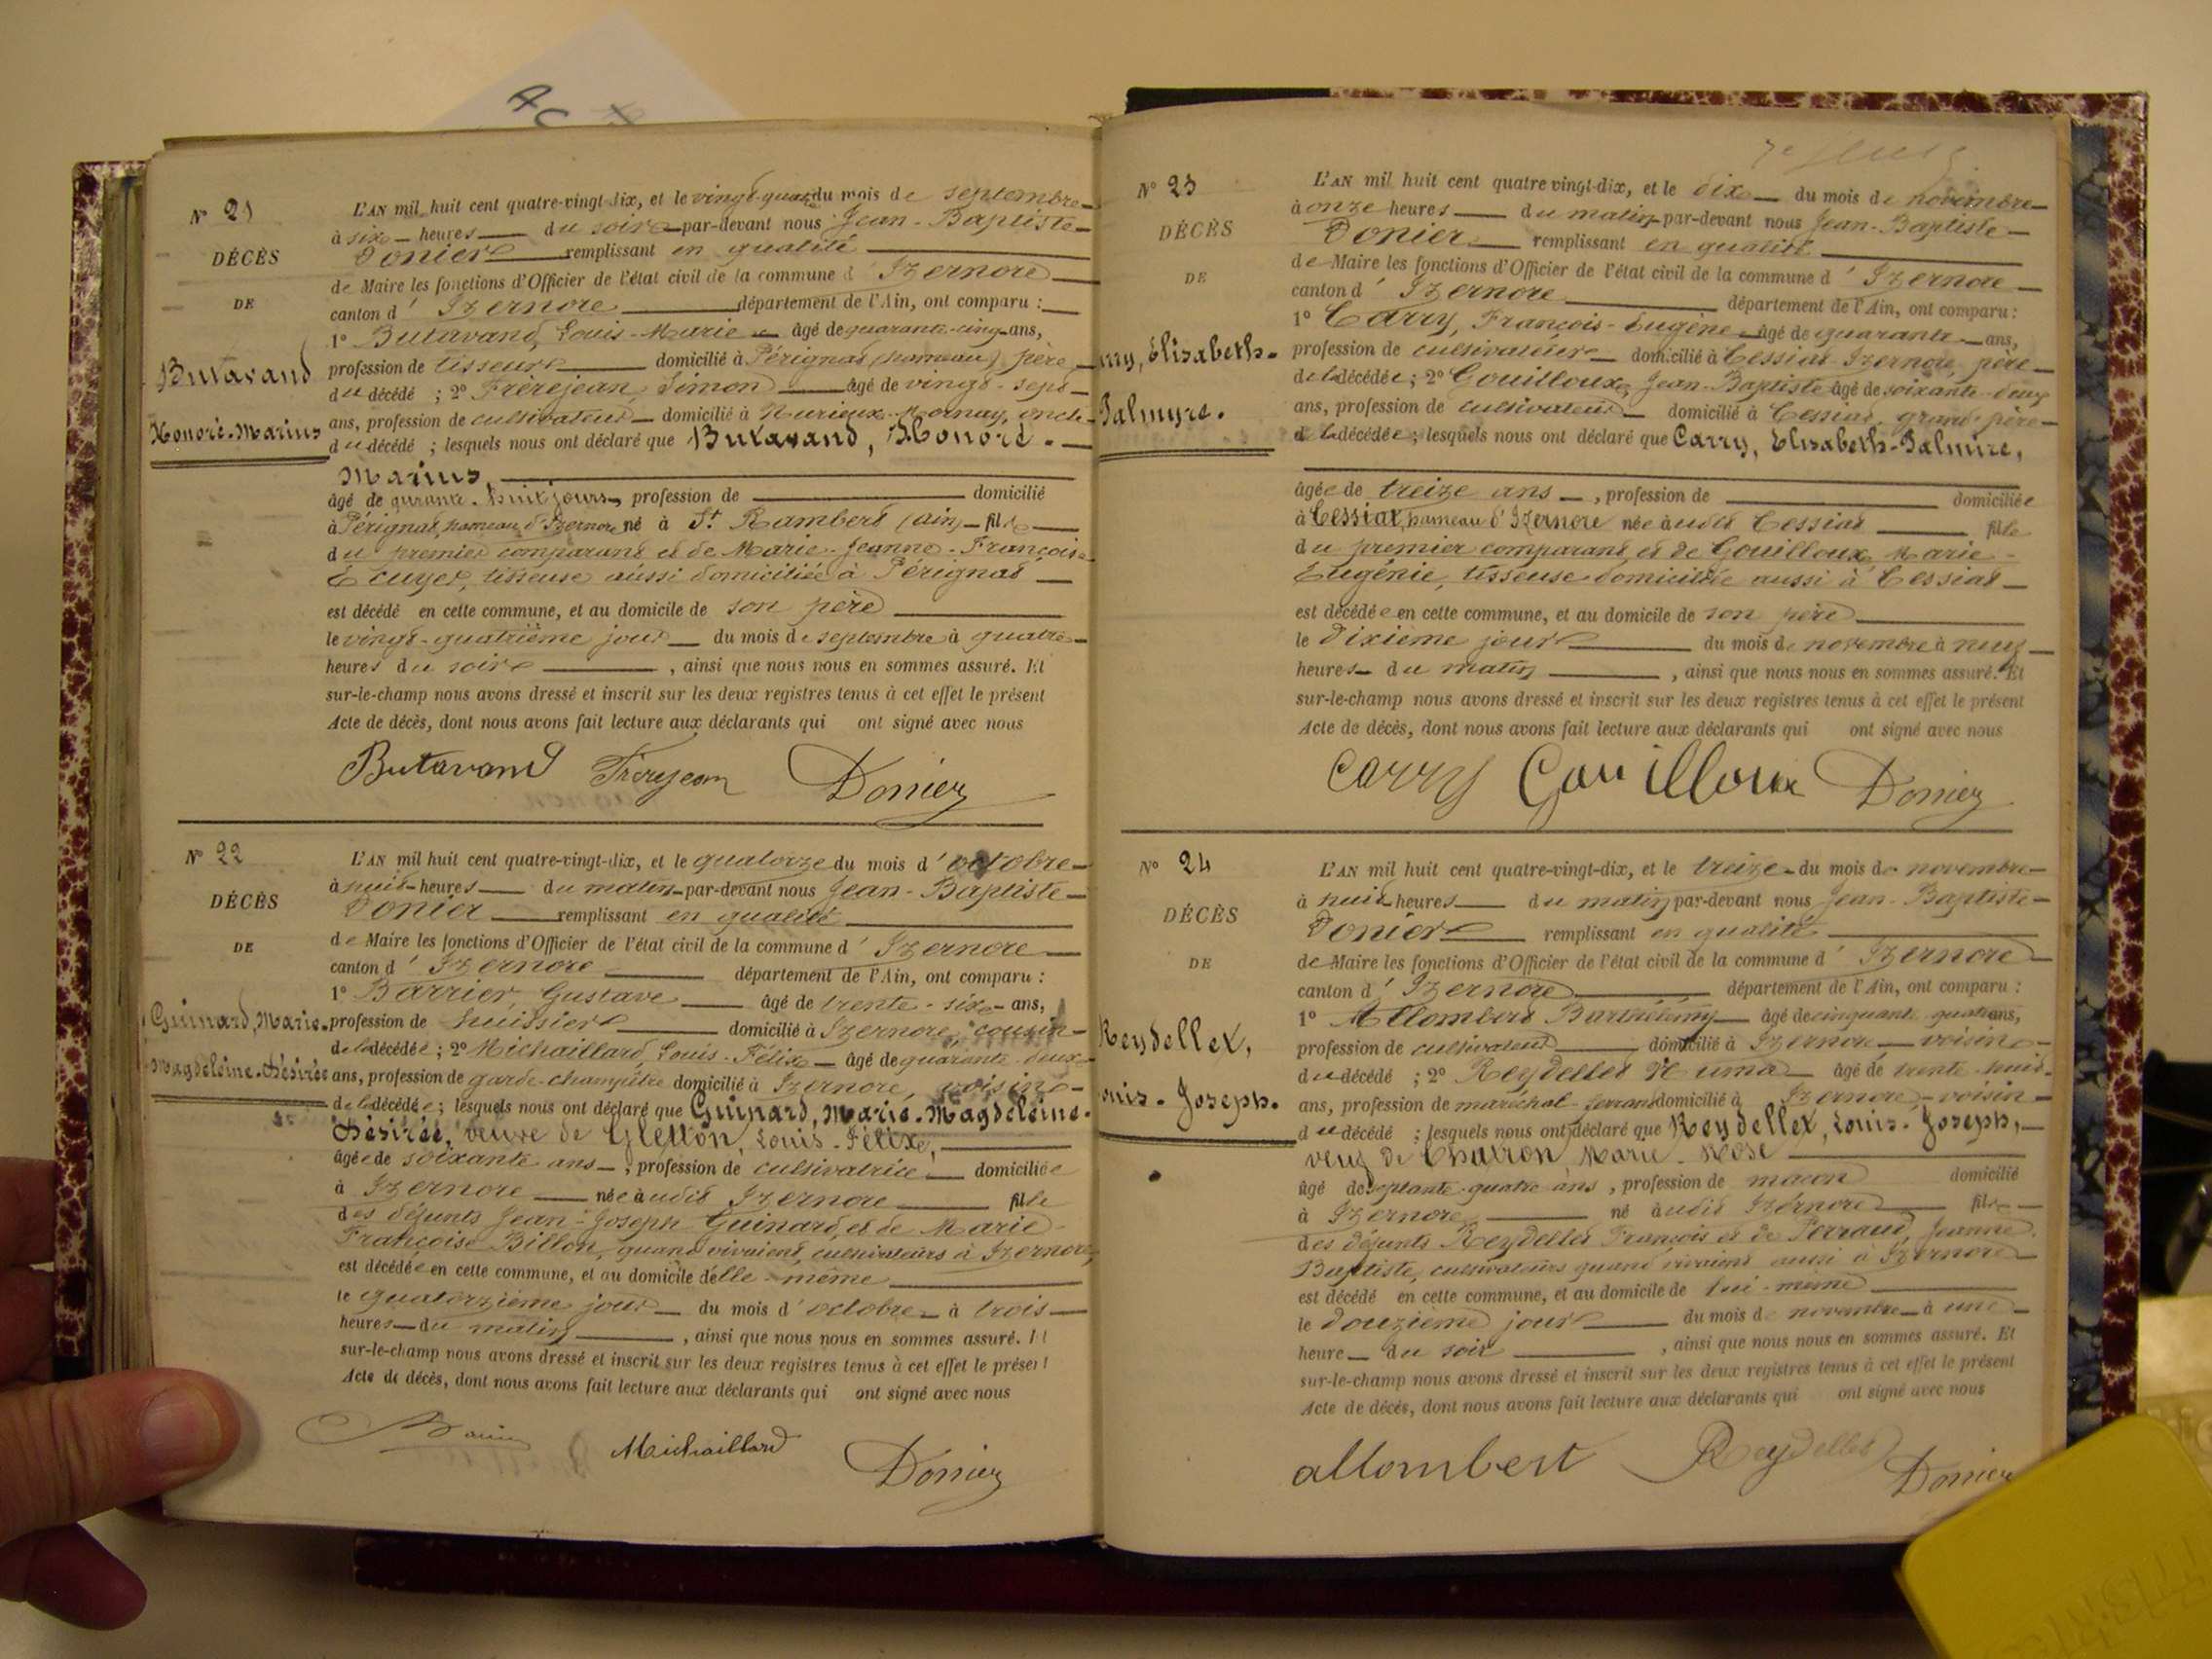 AC
N° 21
DÉCÈS
DE
Butavand
Honoré-Marius
L'AN mil huit cent quatre-vingt dix, et le vingt-quatre du mois de septembre
à six heures du soir par-devant nous Jean-Baptiste
Donier remplissant en qualité
de Maire les fonctions d'Officier de l'état civil de la commune d'Izernore
canton d'Izernore département de l'Ain, ont comparu :
1° Butavand, Louis-Marie âgé de quarante-cinq ans,
profession de tisseur domicilié à Pérignat (hameau), père
du décédé ; 2° Frèrejean, Simon âgé de vingt-sept
ans, profession de cultivateur domicilié à Nurieux-Mornay, oncle
du décédé ; lesquels nous ont déclaré que Butavand, Honoré-
Marius,
âgé de qurante-huit jours, profession de domicilié
à Pérignat, hameau d'Izernore né à St Rambert (ain) fils
du premier comparant et de Marie-Jeanne-Françoise
Ecuyer, tisseuse aussi domiciliée à Pérignat
est décédé en cette commune, et au domicile de son père
le vingt-quatrième jour du mois de septembre à quatre
heures du soir , ainsi que nous nous en sommes assuré. Et
sur-le-champ nous avons dressé et inscrit sur les deux registres tenus à cet effet le présent
Acte de décès, dont nous avons fait lecture aux déclarants qui ont signé avec nous
Butavand Frerejean Donier
N° 22
DÉCÈS
DE
Guinard, Marie-
Magdeleine-Désirée
L'AN mil huit cent quatre-vingt-dix, et le quatorze du mois d'octobre
à huit heures du matin par-devant nous Jean-Baptiste
Donier remplissant en qualité
de Maire les fonctions d'Officier de l'état civil de la commune d'Izernore
canton d'Izernore département de l'Ain, ont comparu :
1° Barrier, Gustave âgé de trente-six ans,
profession de huissier domicilié à Izernore, cousin
de la décédée ; 2° Michaillard, Louis-Félix âgé de quarante-deux
ans, profession de garde-champêtre domicilié à Izernore, voisin
de la décédée ; lesquels nous ont déclaré que Guinard, Marie-Magdeleine-
Désirée, veuve de Gletton, Louis-Félix,
âgée de soixante ans , profession de cultivatrice domiciliée
à Izernore née audit Izernore fille
des défunts Jean-Joseph Guinard, et de Marie-
Françoise Billon, quand vivaient, cultivateurs à Izernore,
est décédée en cette commune, et au domicile d'elle-même
le quatorzième jour du mois d'octobre à trois
heures du matin , ainsi que nous nous en sommes assuré. Et
sur-le-champ nous avons dressé et inscrit sur les deux registres tenus à cet effet le présent
Acte de décès, dont nous avons fait lecture aux déclarants qui ont signé avec nous
Barrier Michaillard Donier
N° 23
DÉCÈS
DE
rry, Elisabeth-
Palmyre.
L'AN mil huit cent quatre vingt-dix, et le dix du mois de novembre
à onze heures du matin par-devant nous Jean-Baptiste
Donier remplissant en qualité
de Maire les fonctions d'Officier de l'état civil de la commune d'Izernore
canton d'Izernore département de l'Ain, ont comparu :
1° Carry, François-Eugène âgé de quarante ans,
profession de cultivateur domicilié à Cessiat-Izernore, père
de la décédée ; 2° Gouilloux, Jean-Baptiste âgé de soixante-deux
ans, profession de cultivateur domicilié à Cessiat, grand-père
de la décédée ; lesquels nous ont déclaré que Carry, Elisabeth-Palmire,
âgée de treize ans , profession de domiciliée
à Cessiat, hameau d'Izernore née audit Cessiat fille
du premier comparant et de Gouilloux Marie-
Eugénie, tisseuse domiciliée aussi à Cessiat
est décédée en cette commune, et au domicile de son père
le dixième jour du mois de novembre à neuf
heures du matin , ainsi que nous nous en sommes assuré. Et
sur-le-champ nous avons dressé et inscrit sur les deux registres tenus à cet effet le présent
Acte de décès, dont nous avons fait lecture aux déclarants qui ont signé avec nous
Carry Gouilloux Donier
N° 24
DÉCÈS
DE
Reydellet,
ouis-Joseph.
L'AN mil huit cent quatre-vingt-dix, et le treize du mois de novembre
à huit heures du matin par-devant nous Jean-Baptiste
Donier remplissant en qualité
de Maire les fonctions d'Officier de l'état civil de la commune d'Izernore
canton d'Izernore département de l'Ain, ont comparu :
1° Allombert Barthélemy âgé de cinquante-quatre ans,
profession de cultivateur domicilié à Izernore voisin
du décédé ; 2° Reydellet Numa âgé de trente-huit
ans, profession de maréchal-ferrand domicilié à Izernore, voisin
du décédé ; lesquels nous ont déclaré que Reydellet, Louis-Joseph,
veuf de Chatron, Marie-Rose
âgé de septante-quatre ans , profession de maçon domicilié
à Izernore né audit Izernore fils
des défunts Reydellet François et de Perraud, Jeanne
Baptiste, cultivateurs quand vivaient aussi à Izernore
est décédé en cette commune, et au domicile de lui-même
le douzième jour du mois de novembre à une
heure du soir , ainsi que nous nous en sommes assuré. Et
sur-le-champ nous avons dressé et inscrit sur les deux registres tenus à cet effet le présent
Acte de décès, dont nous avons fait lecture aux déclarants qui ont signé avec nous
allombert Reydellet Donier